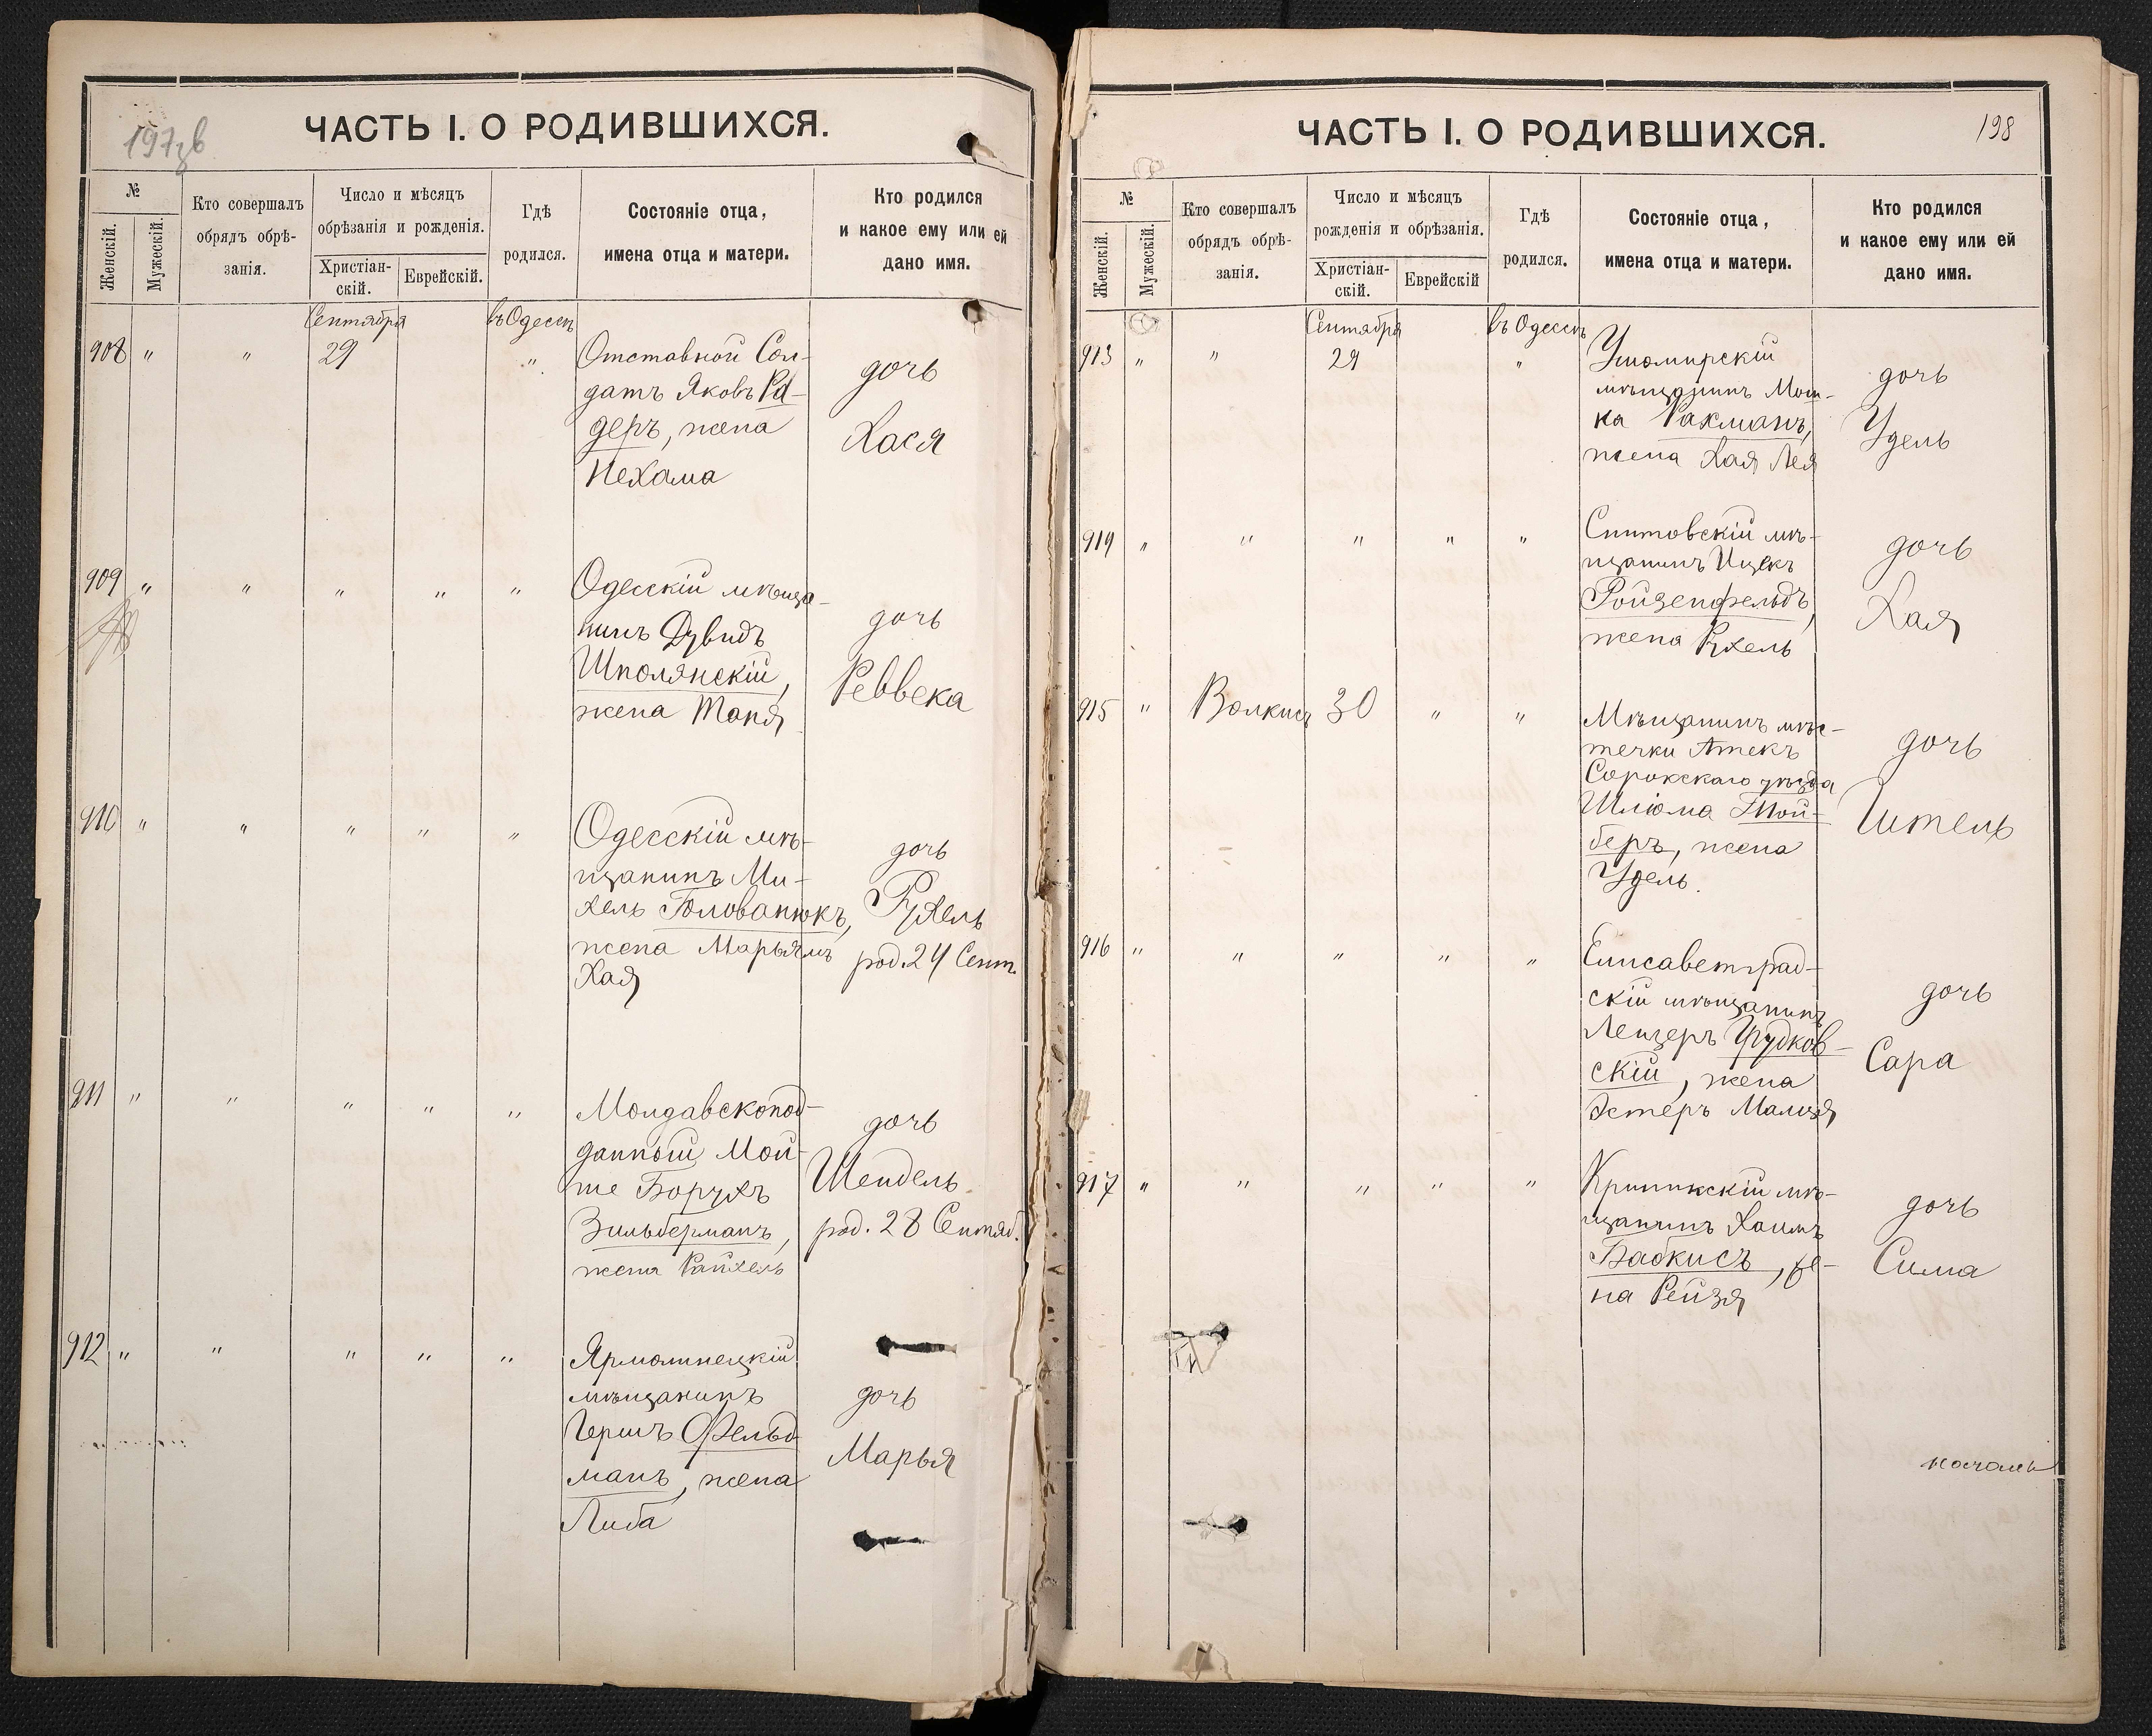 197зв
ЧАСТЬ I. О РОДИВШИХСЯ.
№
Женскій.
Мужескій.
Кто совершалъ
обрядъ обрѣ-
занія.
Число и мѣсяцъ
обрѣзанія и рожденія.
Христіан-
скій.
Еврейскій.
Гдѣ
родился.
Состояніе отца,
имена отца и матери.
Кто родился
и какое ему или ей
дано имя.
Сентября
въ Одессѣ
908 " " 29 "
Отставной Сол-
датъ Яковъ Ра-
деръ, жена
Нехама
дочь
Хася
909 " " " " "
Одесскій мѣща-
нинъ Дувидъ
Шполянскій,
жена Таня
дочь
Реввека
910 " " " " "
Одесскій мѣ-
щанинъ Ми-
хель Голованюкъ,
жена Марьямъ
Хая
дочь
Рухель
род. 24 Сент.
911 " " " " "
Молдавскопод-
данный Мой-
ше Борухъ
Зильберманъ,
жена Райхель
дочь
Шендель
род. 28 Сентяб.
912 " " " " "
Ярмолинецкій
мѣщанинъ
Гершъ Фельд-
манъ, жена
Либа
дочь
Марья
198
ЧАСТЬ I. О РОДИВШИХСЯ.
№
Женскій.
Мужескій.
Кто совершалъ
обрядъ обрѣ-
занія.
Число и мѣсяцъ
рожденія и обрѣзанія.
Христіан-
скій.
Еврейскій
Гдѣ
родился.
Состояніе отца,
имена отца и матери.
Кто родился
и какое ему или ей
дано имя.
Сентября
въ Одессѣ
913 " " 29 "
Ушомирскій
мѣщанинъ Мош-
ка Рахманъ,
жена Хая Лея
дочь
Удель
914 " " " " "
Ситовскій мѣ-
щанинъ Ицекъ
Ройзенфельдъ,
жена Рухель
дочь
Хая
915 " Волкисъ 30 " "
Мѣщанинъ мѣс-
течки Атекъ
Сорокскаго уѣзда
Шлёма Той-
беръ, жена
Удель.
дочь
Итель
916 " " " " "
Елисаветград-
скій мѣщанинъ
Лейзеръ Грудков-
скій, жена
Эстеръ Малця
дочь
Сара
917 " " " " "
мѣ-
щанинъ Хаимъ
Бабкисъ, же-
на Рейзя
дочь
Сима